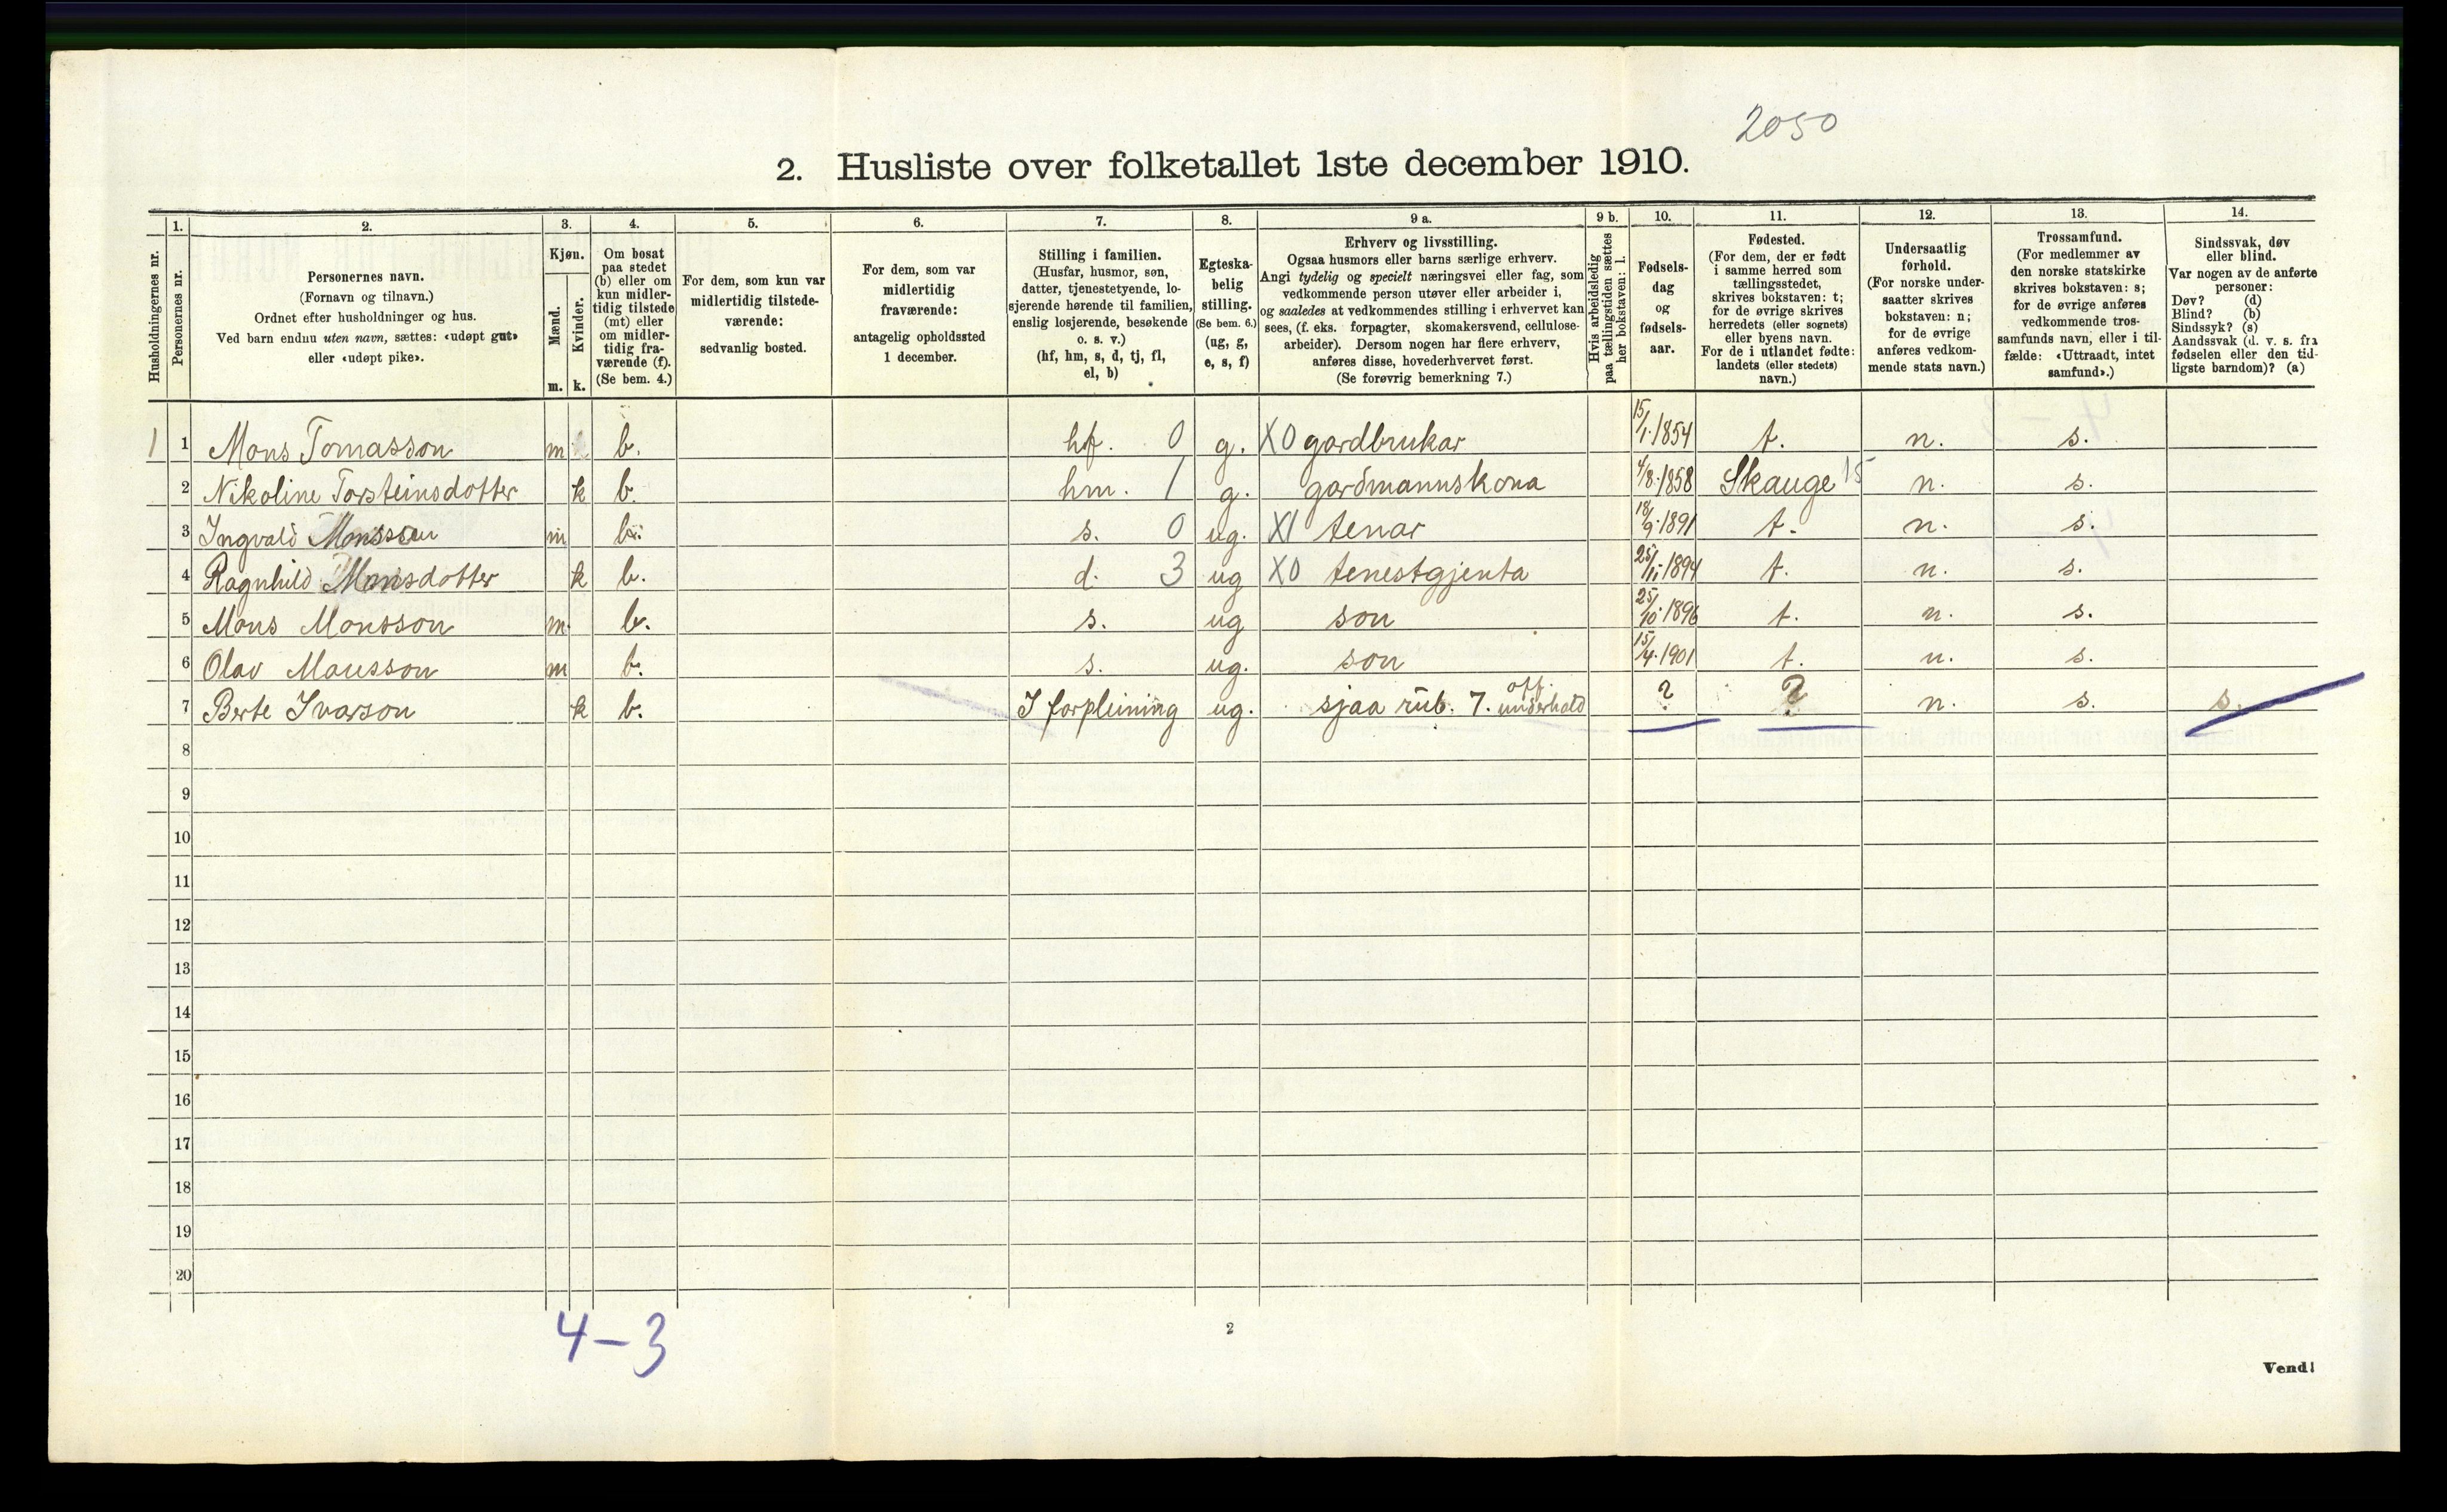 2050
2. Husliste over folketallet 1ste december 1910.
Husholdningernes nr.
1.
Personernes nr.
2.
Personernes navn.
(Fornavn og tilnavn.)
Ordnet efter husholdninger og hus.
Ved barn endnu uten navn, sættes: «udøpt gut»
eller «udøpt pike».
3.
Kjøn.
Mænd.
Kvinder.
m. k.
4.
Om bosat
paa stedet
(b) eller om
kun midler-
tidig tilstede
(mt) eller
om midler-
tidig fra-
værende (f).
(Se bem. 4.)
5.
For dem, som kun var
midlertidig tilstede-
værende:
sedvanlig bosted.
6.
For dem, som var
midlertidig
fraværende:
antagelig opholdssted
1 december.
7.
Stilling i familien.
(Husfar, husmor, søn,
datter, tjenestetyende, lo-
sjerende hørende til familien,
enslig losjerende, besøkende
o. s. v.)
(hf, hm, s, d, tj, fl,
el, b)
8.
Egteska-
belig
stilling.
(Se bem. 6.)
(ug, g,
e, s, f)
9 a.
Erhverv og livsstilling.
Ogsaa husmors eller barns særlige erhverv.
Angi tydelig og specielt næringsvei eller fag, som
vedkommende person utøver eller arbeider i,
og saaledes at vedkommendes stilling i erhvervet kan
sees, (f. eks. forpagter, skomakersvend, cellulose-
arbeider). Dersom nogen har flere erhverv,
anføres disse, hovederhvervet først.
(Se forøvrig bemerkning 7.)
9 b.
Hvis arbeidsledig
paa tællingstiden sættes
her bokstaven: l.
10.
Fødsels-
dag
og
fødsels-
aar.
11.
Fødested.
(For dem, der er født
i samme herred som
tællingsstedet,
skrives bokstaven: t;
for de øvrige skrives
herredets (eller sognets)
eller byens navn.
For de i utlandet fødte:
landets (eller stedets)
navn.)
12.
Undersaatlig
forhold.
(For norske under-
saatter skrives
bokstaven: n;
for de øvrige
anføres vedkom-
mende stats navn.)
13.
Trossamfund.
(For medlemmer av
den norske statskirke
skrives bokstaven: s;
for de øvrige anføres
vedkommende tros-
samfunds navn, eller i til-
fælde: «Uttraadt, intet
samfund».)
14.
Sindssvak, døv
eller blind.
Var nogen av de anførte
personer:
Døv? (d)
Blind? (b)
Sindssyk? (s)
Aandssvak (d. v. s. fra
fødselen eller den tid-
ligste barndom)? (a)
1 1 Mons Tomasson m b. hf. 0 g. X0 gardbrukar 15/1.1854 t. n. s.
2 Nikoline Torsteinsdotter k b. hm. 1 g. gardmannskona 4/8.1858 Skauge 15 n. s.
3 Ingvald Monsson m b. s. 0 ug. X1 tenar 18/9.1891 t. n. s.
4 Ragnhild Monsdotter k b. d. 3 ug X0 tenestgjenta 25/11.1894 t. n. s.
5 Mons Monsson m. b. s. ug son 25/10.1896 t. n. s.
6 Olav Monsson m b. s. ug. son 15/4.1901 t. n. s.
7 Berte Ivarson k b. I forpleining ug. sjaa rub. 7. off. underhald ? ? n. s. s.
8
9
10
11
12
13
14
15
16
17
18
19
20
4-3
2
Vend!